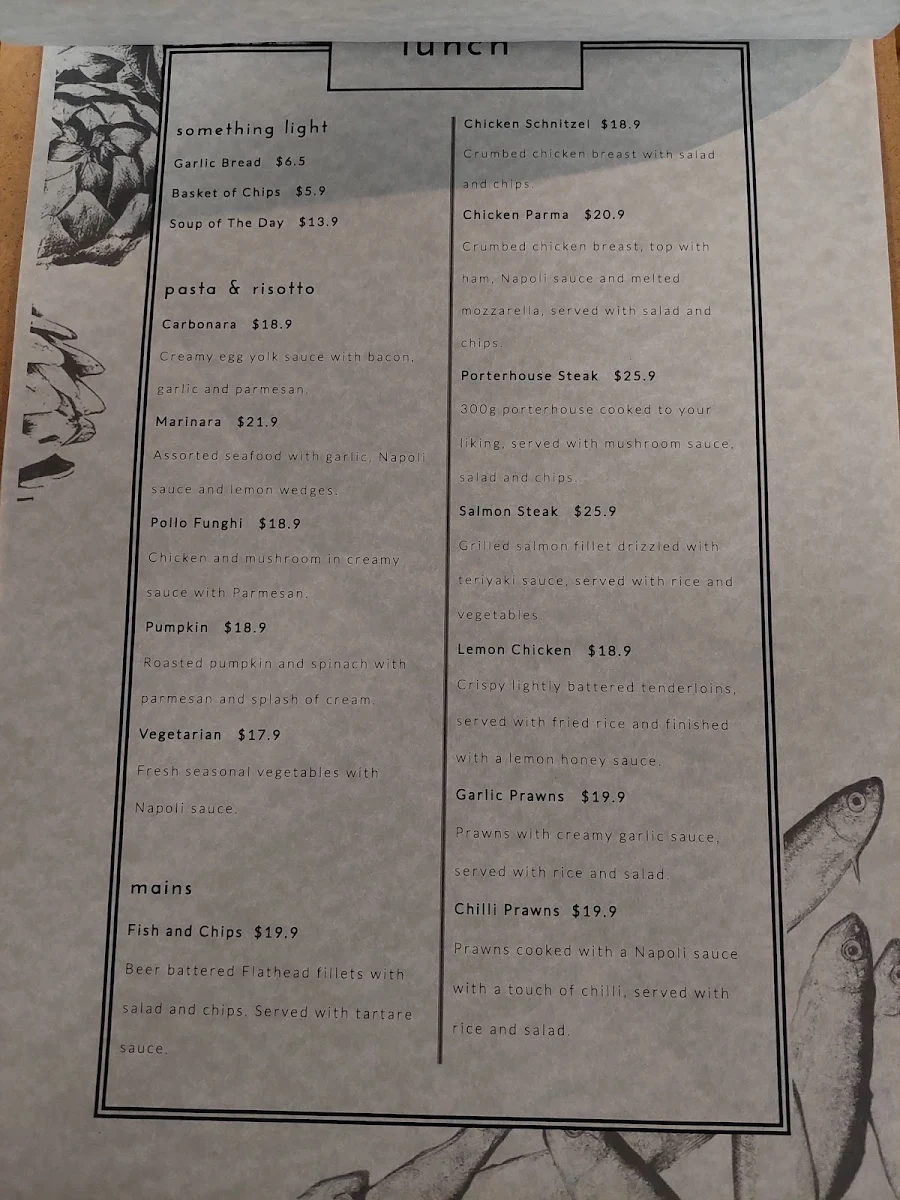 lunch
something light
Garlic Bread $6.5
Basket of Chips $5.9
Soup of The Day $13.9
pasta & risotto
Carbonara $18.9
Creamy egg yolk sauce with bacon,
garlic and parmesan.
Marinara $21.9
Assorted seafood with garlic, Napoli
sauce and lemon wedges.
Pollo Funghi $18.9
Chicken and mushroom in creamy
sauce with Parmesan.
Pumpkin $18.9
Roasted pumpkin and spinach with
parmesan and splash of cream.
Vegetarian $17.9
Fresh seasonal vegetables with
Napoli sauce.
mains
Fish and Chips $19.9
Beer battered Flathead fillets with
salad and chips. Served with tartare
sauce.
Chicken Schnitzel $18.9
Crumbed chicken breast with salad
and chips.
Chicken Parma $20.9
Crumbed chicken breast, top with
ham, Napoli sauce and melted
mozzarella, served with salad and
chips.
Porterhouse Steak $25.9
300g porterhouse cooked to your
liking, served with mushroom sauce,
salad and chips.
Salmon Steak $25.9
Grilled salmon fillet drizzled with
teriyaki sauce, served with rice and
vegetables
Lemon Chicken $18.9
Crispy lightly battered tenderloins,
served with fried rice and finished
with a lemon honey sauce.
Garlic Prawns $19.9
Prawns with creamy garlic sauce,
served with rice and salad.
Chilli Prawns $19.9
Prawns cooked with a Napoli sauce
with a touch of chilli, served with
rice and salad.